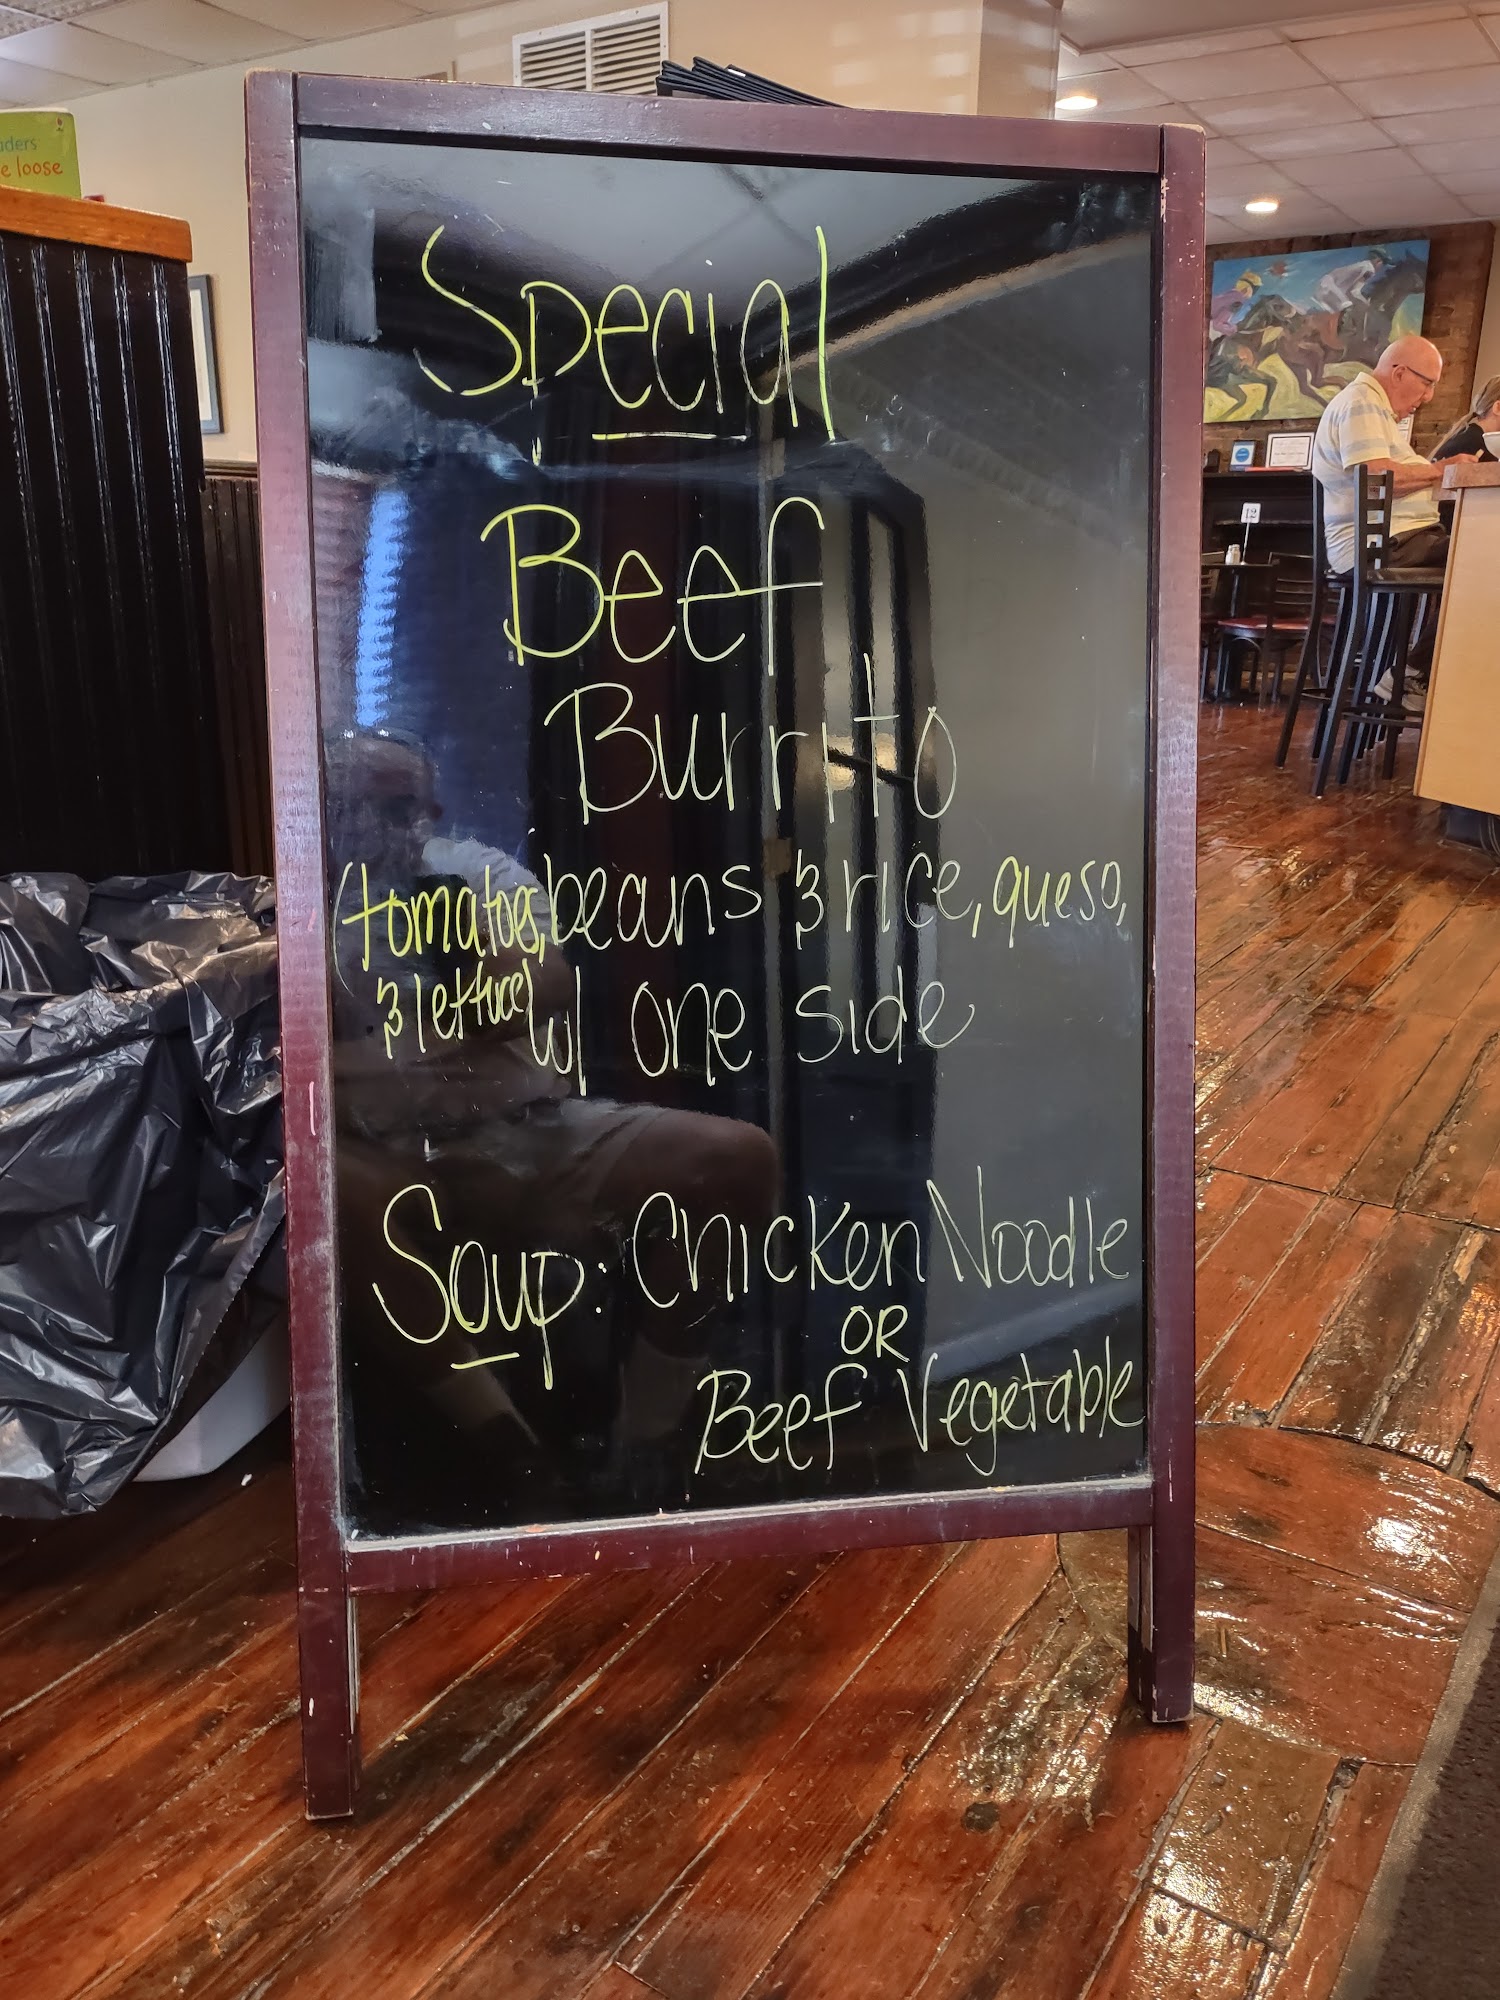 aders
e loose
Special
Beef
Burrito
(tomatoes, beans & rice, queso,
& lettuce) w/ one side
Soup: Chicken Noodle
OR
Beef Vegetable
12